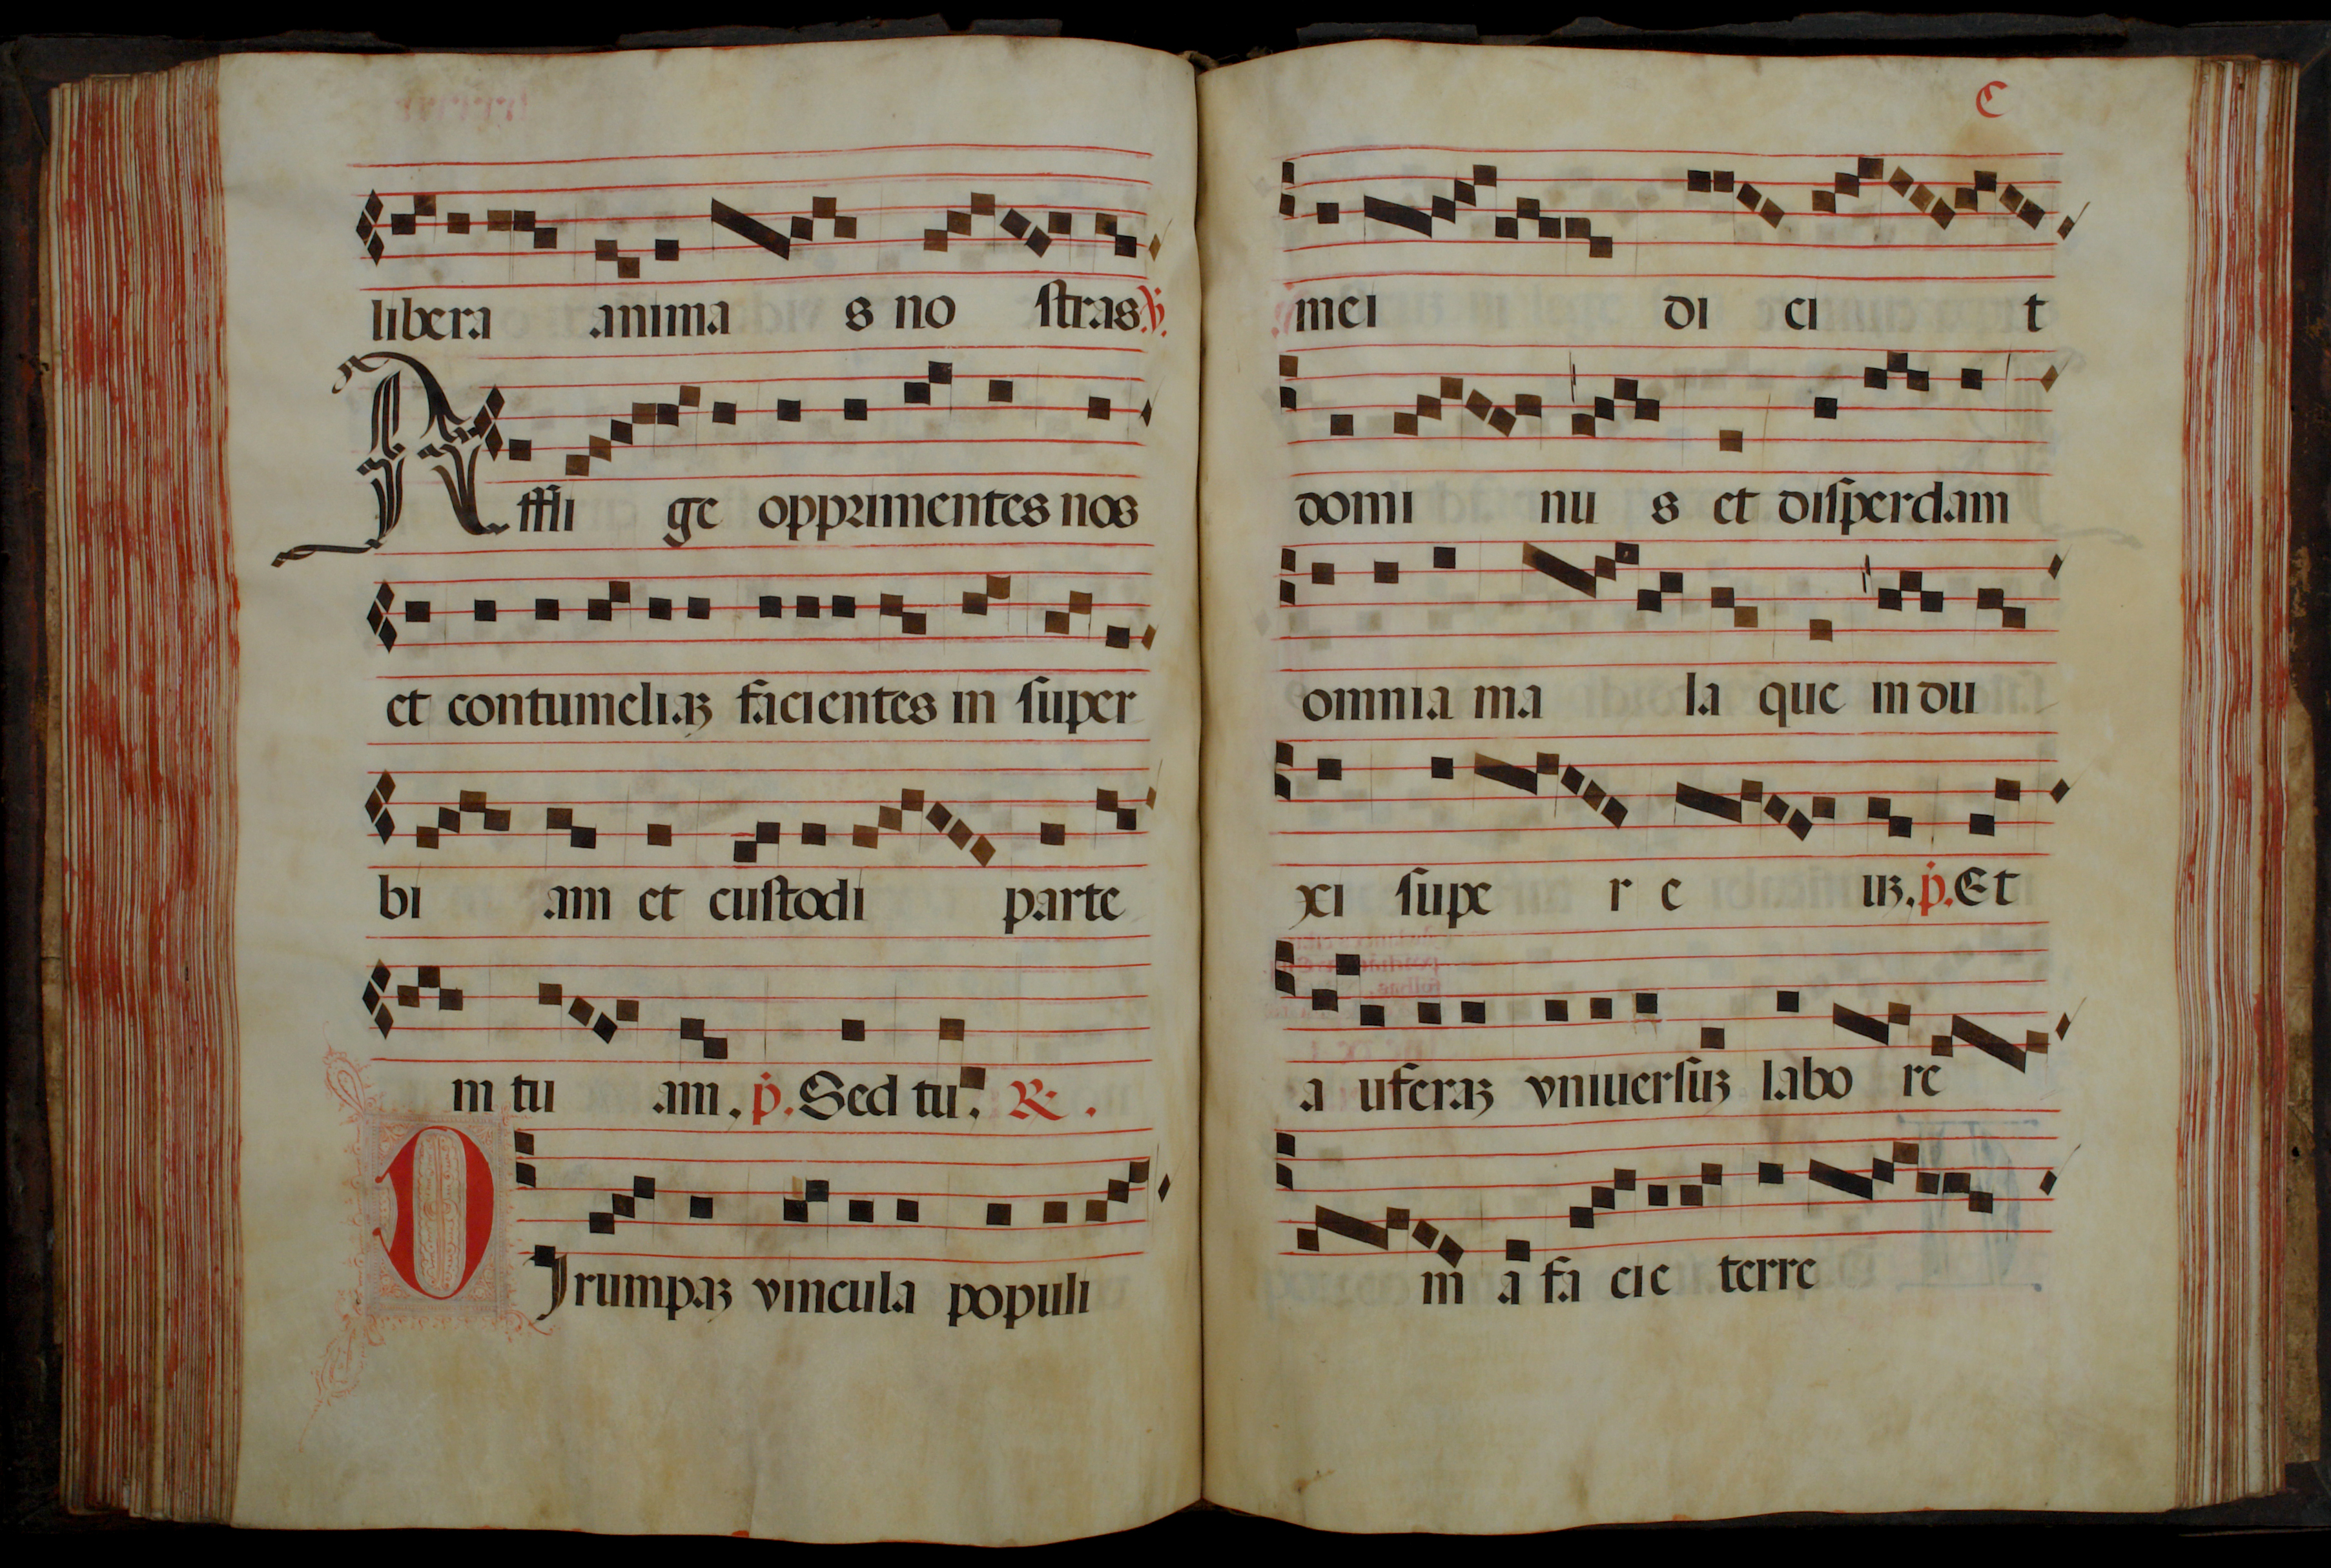 libera anima s no stras ℣.
Affli ge opprimentes nos
et contumeliaꝫ facientes in super
bi am et custodi parte
m tu am. p̾. Sed tu. ℟.
DJrumpaꝫ vincula populi
C
mei di ci t
domi nu s et disperdam
omnia ma la que in du
xi supe r e uꝫ. p̾. Et
a uferaꝫ vniuersuꝫ labo re
m a fa cie terre